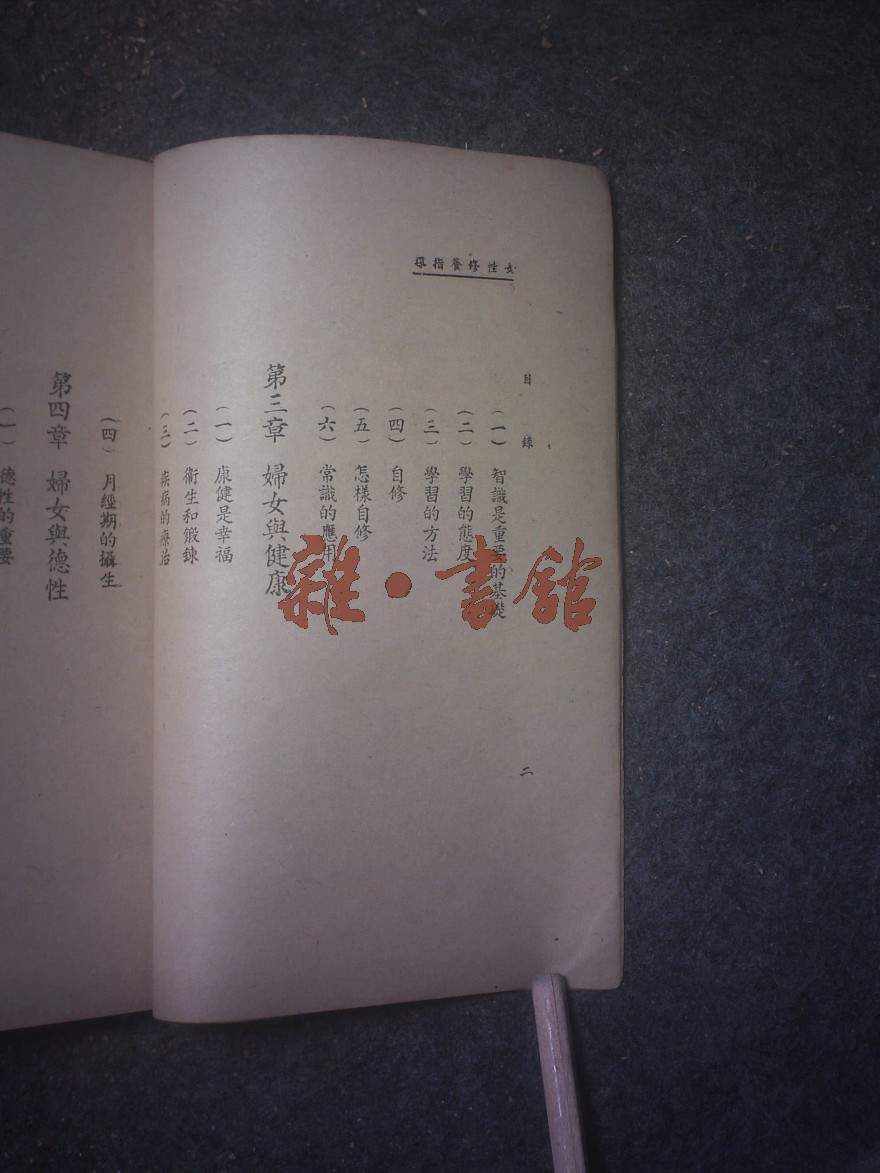 女性修養指導
目錄
二
(一) 智識是重要的基礎
(二) 學習的態度
(三) 學習的方法
(四) 自修
(五) 怎樣自修
(六) 常識的應用
第三章 婦女與健康
(一) 康健是幸福
(二) 衛生和鍛鍊
(三) 疾病的療治
(四) 月經期的攝生
第四章 婦女與德性
(一) 德性的重要
雜·書館